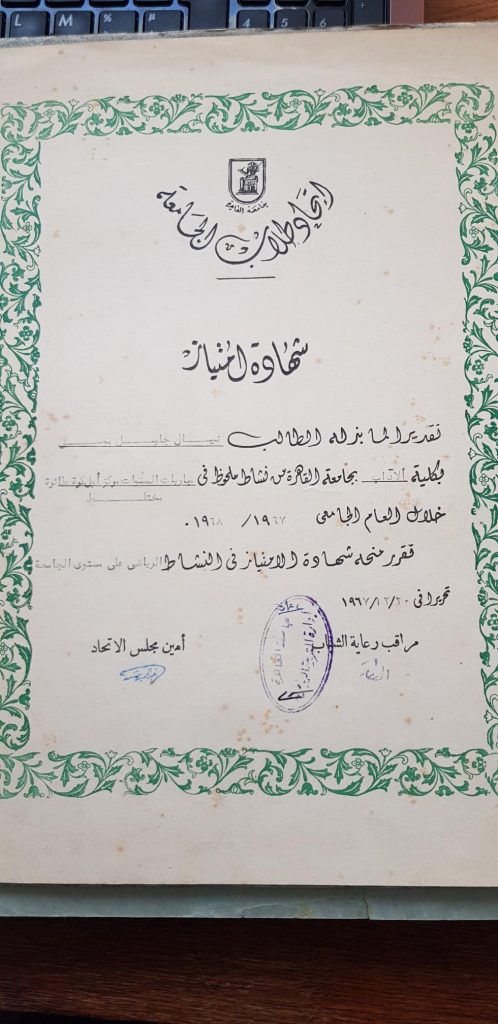 L M % µ 4 5 6
جامعة القاهرة
اتحاد طلاب الجامعة
شهادة امتياز
تقديرا لما بذله الطالب نبيال خليل
بكلية الآداب بجامعة القاهرة من نشاط ملحوظ فى مباريات السنوات مركز أول كرة طائرة
مختلط
خلال العام الجامعى ١٩٦٧/ ١٩٦٨.
فقرر منحه شهادة الامتياز فى النشاط الرياضى على مستوى الجامعة
تحريرا فى ٢٠/ ١٢/ ١٩٦٧
مراقب رعاية الشباب
أمين مجلس الاتحاد